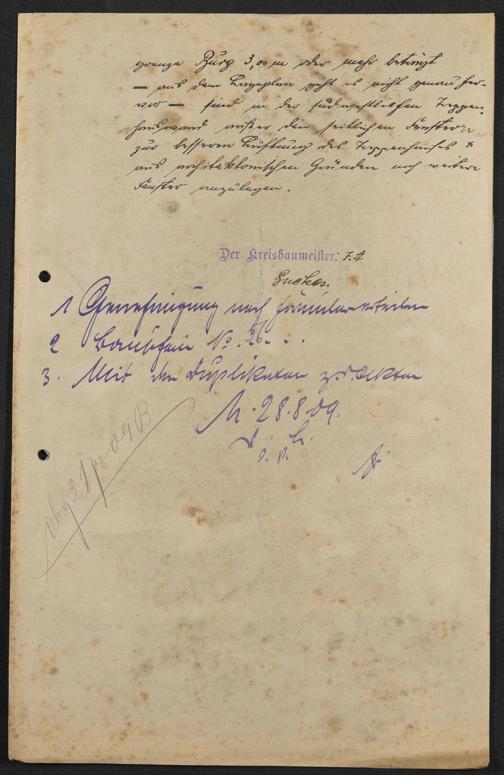 grenze Burg 3,00 m oder mehr beträgt
— aus dem Lageplan geht es nicht genau her-
vor — sind in der südwestlichen Treppen-
hauswand außer den seitlichen Fenstern
zur besseren Lüftung des Treppenhauses &
aus architektonischen Gründen noch weitere
Fenster anzulegen.
Der Kreisbaumeister: J. A.
1 Genehmigung nach Formular erteilen
2 Bauschein No. 26
3. Mit den Duplikaten z. d. Akten
M. 28.8.09.
31/8 09 B